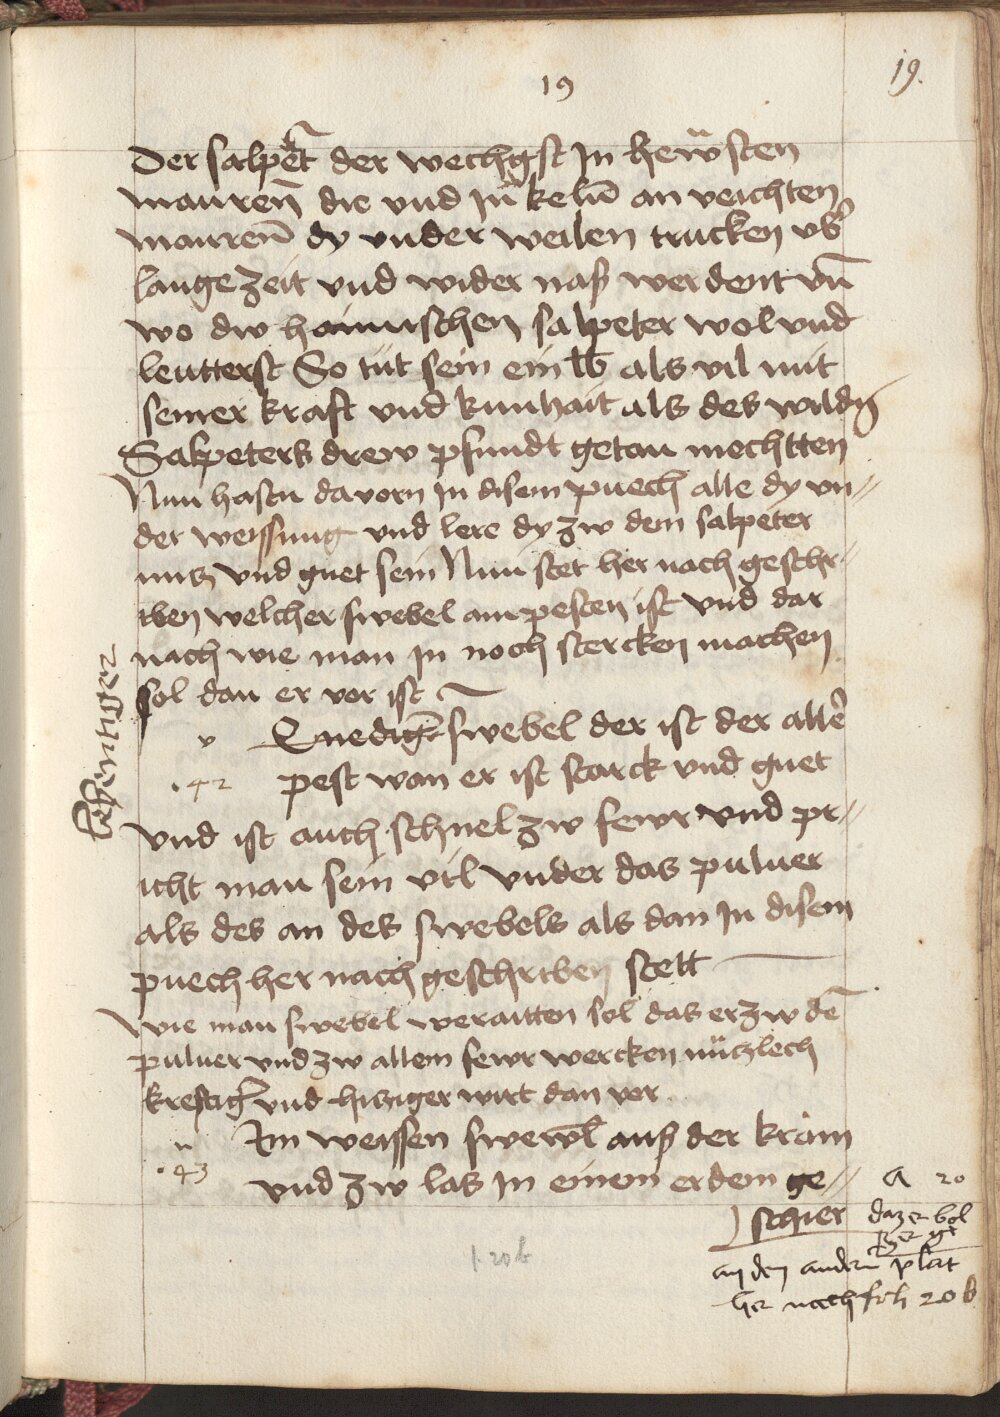 19
19.
Der salpet͛ der wechgst In hewsten
mauren̄ die vnd In kelrn̄ an veichten
mauren̄ dy vnder weilen trucken vb͛
lange zeit vnd wider naß werdent vn̄
wo dw haimischen salpeter wol vnd
leutterst So tüt sein ein lb als vil mit
seiner kraft vnd kunhait als des wildn̄
Salpeters drew pfundt getan mechtten
Nun hastu davorn In disem puech alle dy vn=
der weissung vnd lere dy zw dem salpeter
nucz vnd guet sein Nun stet her nach geschr=
iben welcher swebel am pesten ist vnd dar
nach wie man In noch stercken machen
sol dan er vor ist
lebentiger
v Quedig͛ swebel der ist der alle͛
.42 pest wan er ist starck vnd guet
vnd ist auch schnel zw fewr vnd pr=
icht man sein vil vnder das puluer
als des an des swebels als dan In disem
puech her nach geschriben stett
Wie man swebel weraitten sol das er zw de̅
puluer vnd zw allem fewr wercken nüczlech
kreftig͛ vnd hicziger wirt dan vor
Im weissen swewl auß der kram
.43 vnd zw las In einem erdem ge=
schier
a 20
daz er bol
an den andern plat
her nach
20 b
f. 20b